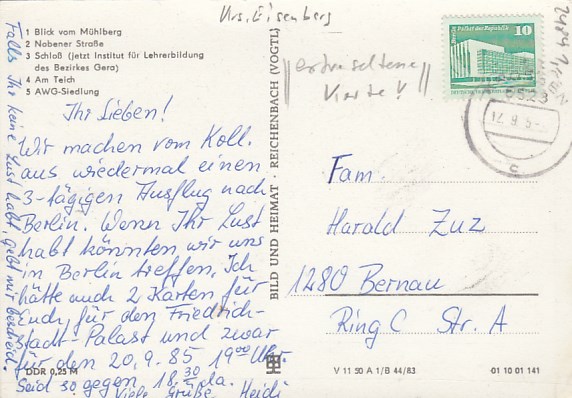 Krs. Eisenberg
1 Blick vom Mühlberg
2 Nobener Straße
3 Schloß (jetzt Institut für Lehrerbildung
des Bezirkes Gera)
4 Am Teich
5 AWG-Siedlung
Ihr Lieben!
Wir machen vom Koll.
aus wiedermal einen
3-tägigen Ausflug nach
Berlin. Wenn Ihr Lust
habt könnten wir uns
in Berlin treffen. Ich
hätte auch 2 Karten für
Eudy für den Friedrich-
stadt-Palast und zwar
für den 20.9.85 19⁰⁰ Uhr.
Seid so gegen 18.30 da.
Viele Grüße Heidi
Falls Ihr keine Lust habt, gebt mir bescheid.
DDR 0,25 M
BILD UND HEIMAT · REICHENBACH (VOGTL)
Karte !
Palast der Republik
10
DDR
6523
12.9.85-
c
Fam.
Harald Zuz
1280 Bernau
Ring C Str. A
V 11 50 A 1/B 44/83
01 10 01 141